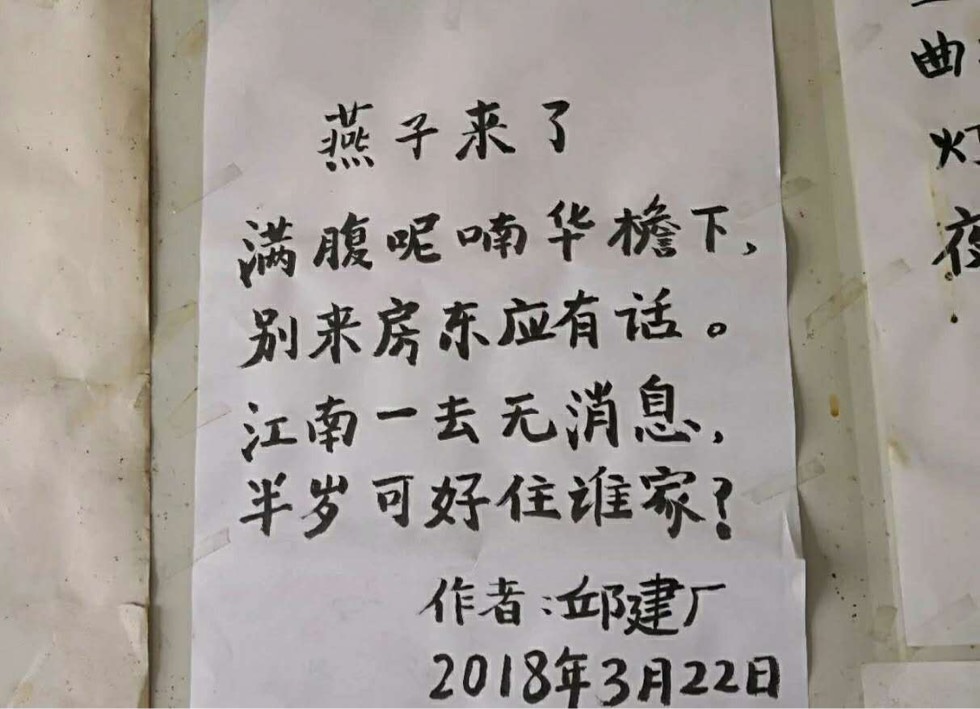 燕子来了
满腹呢喃华檐下，
别来房东应有话。
江南一去无消息，
半岁可好住谁家？
作者：邱建厂
2018年3月22日
曲
灯
夜